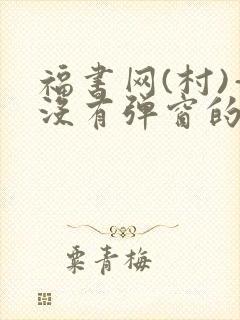 福书网(村)-
没有弹窗的
粟青梅